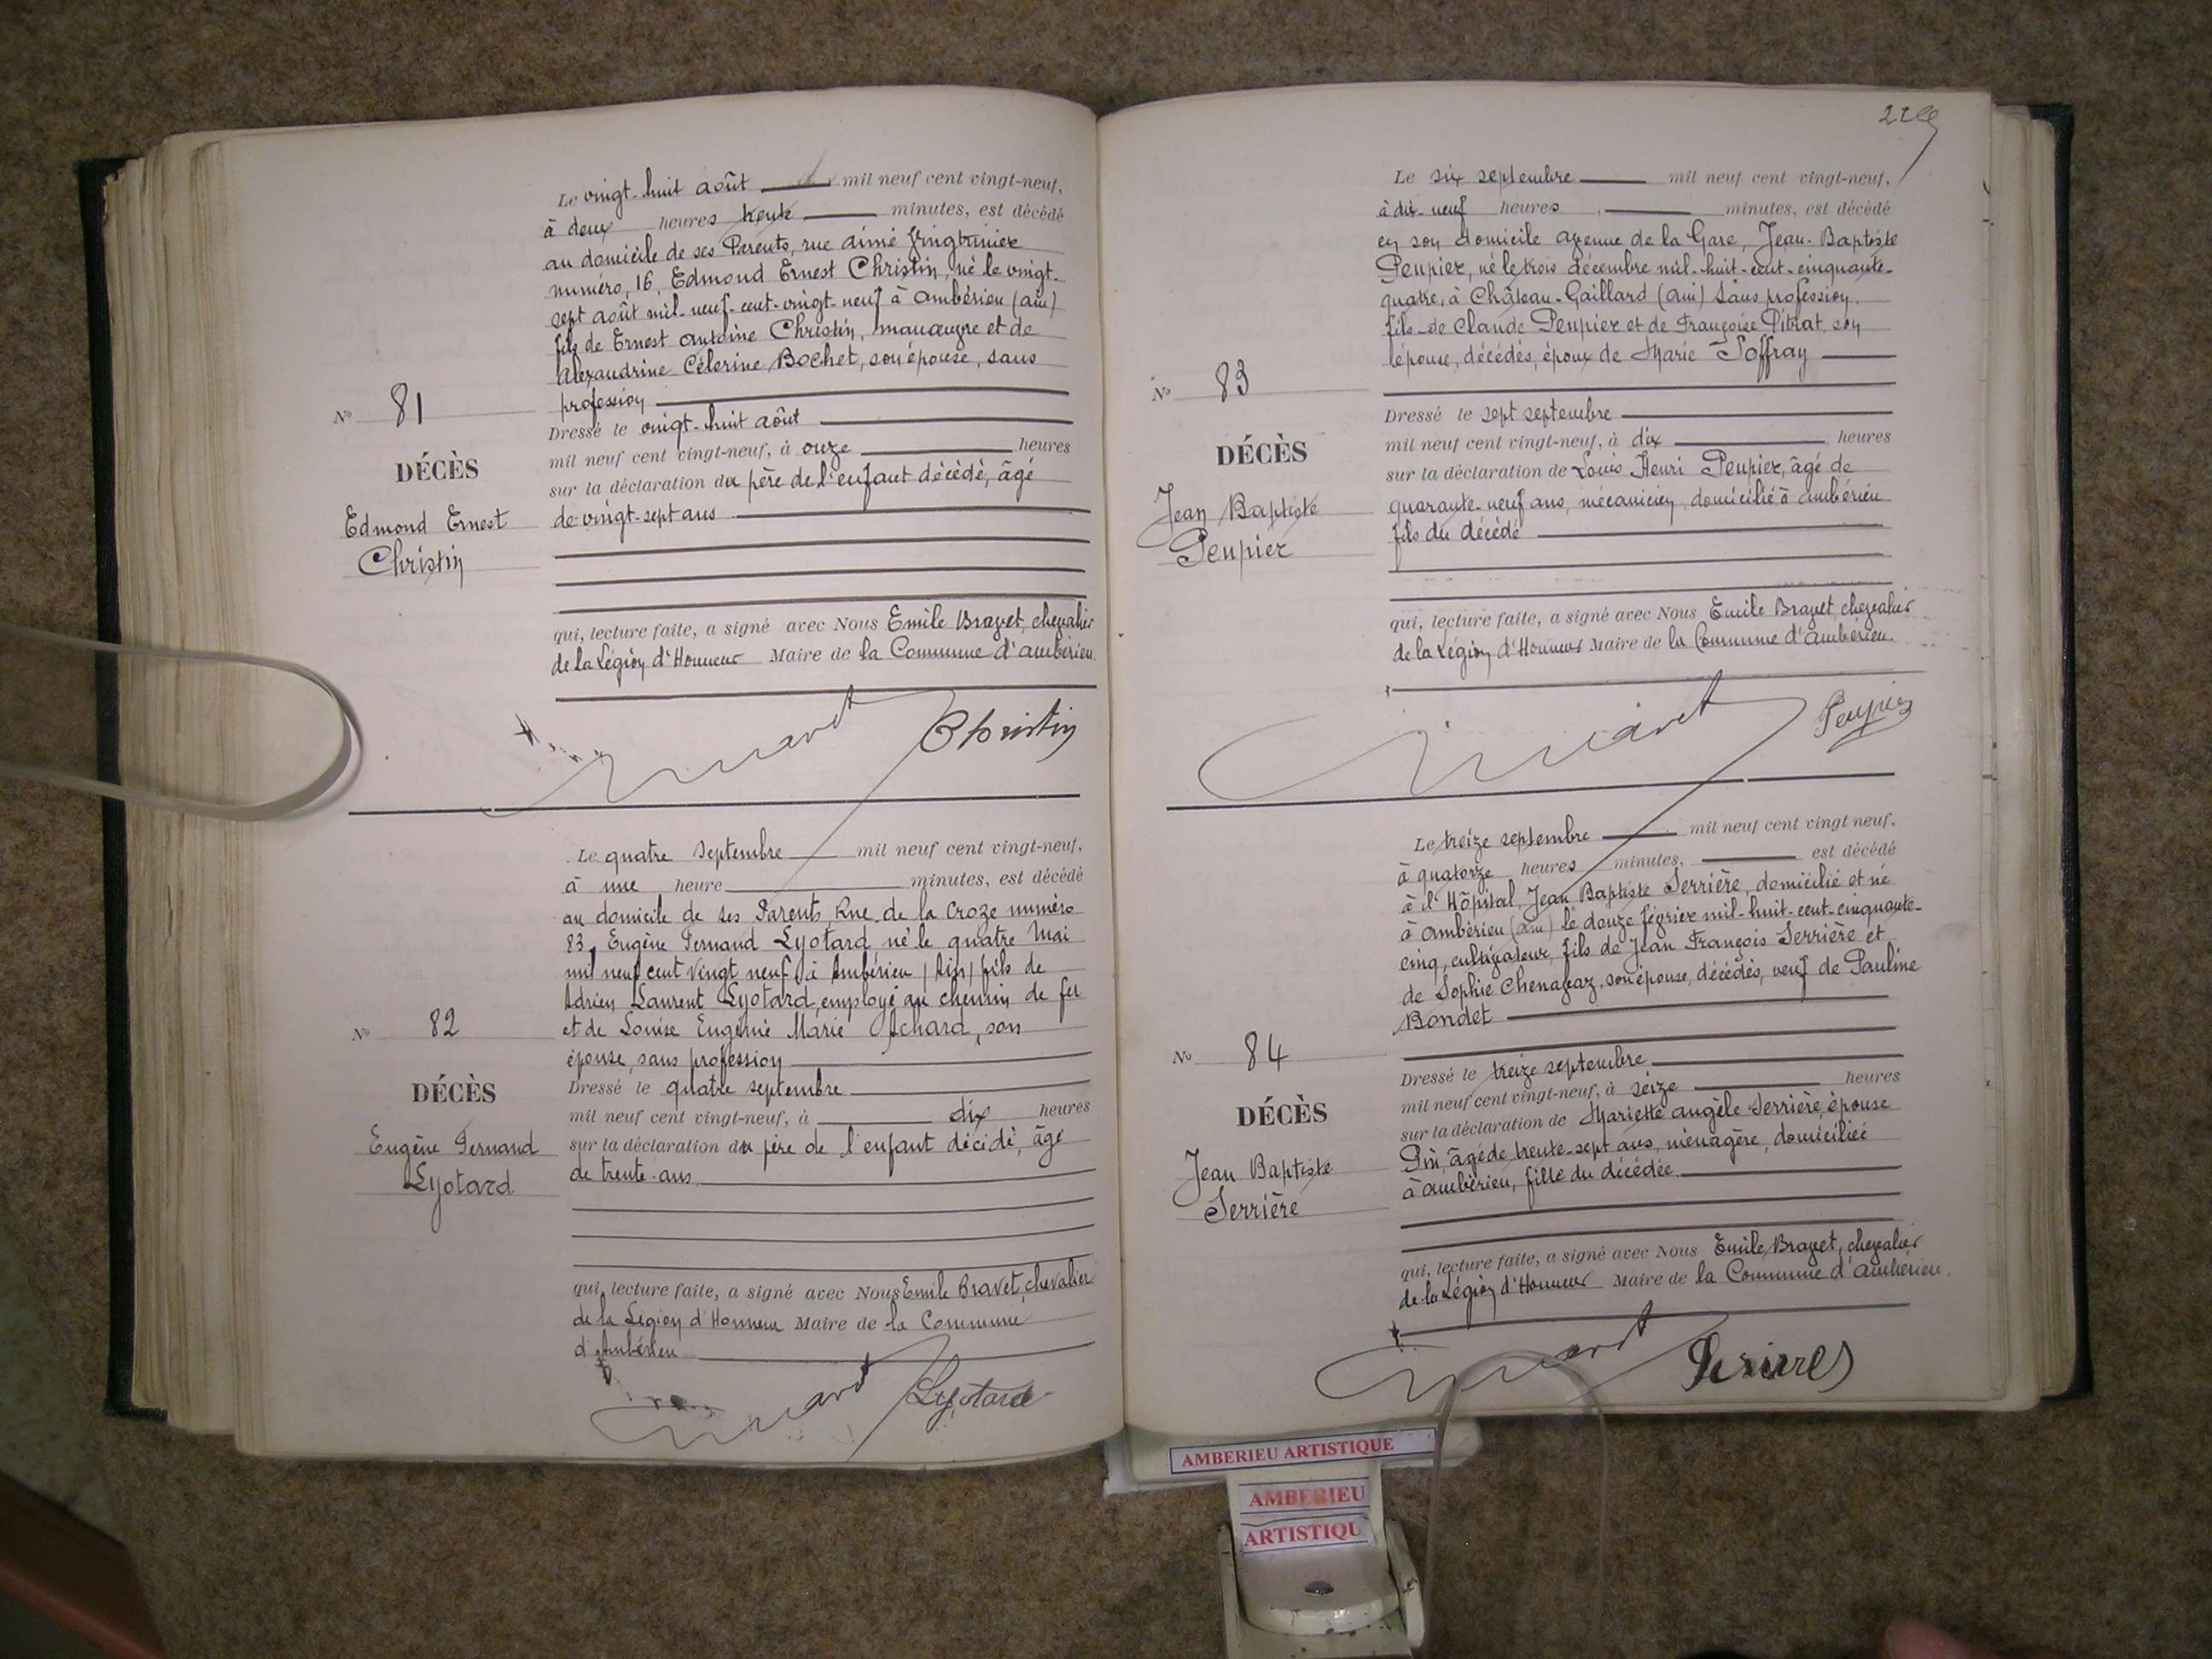 Le vingt-huit août mil neuf cent vingt-neuf,
à deux heures trente minutes, est décédé
au domicile de ses Parents, rue aimé Vingtrinier
numéro, 16, Edmond Ernest Christin, né le vingt-
sept août mil-neuf-cent-vingt-neuf à ambérieu (ain)
fils de Ernest antoine Christin, manœuvre et de
Alexandrine Célerine Bochet, son épouse, sans
profession
No 81
DÉCÈS
Edmond Ernest
Christin
Dressé le vingt-huit août
mil neuf cent vingt-neuf, à onze heures
sur la déclaration du père de l'enfant décédé, âgé
de vingt-sept ans
qui, lecture faite, a signé avec Nous Emile Bravet, chevalier
de la Légion d'Honneur Maire de la Commune d'ambérieu.
Christin
Le quatre Septembre mil neuf cent vingt-neuf,
à une heure minutes, est décédé
au domicile de ses Parents, Rue de la Croze numéro
83, Eugène Fernand Lyotard né le quatre Mai
mil neuf cent vingt neuf à Ambérieu (Ain) fils de
Adrien Laurent Lyotard, employé au chemin de fer
et de Louise Eugénie Marie Achard, son
épouse, sans profession
No 82
DÉCÈS
Eugène Fernand
Lyotard
Dressé le quatre septembre
mil neuf cent vingt-neuf, à dix heures
sur la déclaration du père de l'enfant décédé, âgé
de trente-ans
qui, lecture faite, a signé avec Nous Emile Bravet, chevalier
de la Légion d'Honneur Maire de la Commune
d'Ambérieu
Lyotard
Le six septembre mil neuf cent vingt-neuf,
à dix-neuf heures, minutes, est décédé
en son domicile avenue de la Gare, Jean-Baptiste
Peupier, né le trois décembre mil-huit-cent-cinquante-
quatre, à Château-Gaillard (ain) sans profession.
fils de Claude Peupier et de Françoise Pitrat, son
épouse, décédés, époux de Marie Joffray
No 83
DÉCÈS
Jean Baptiste
Peupier
Dressé le sept septembre
mil neuf cent vingt-neuf, à dix heures
sur la déclaration de Louis Henri Peupier, âgé de
quarante-neuf ans, mécanicien, domicilié à ambérieu
fils du décédé
qui, lecture faite, a signé avec Nous Emile Bravet, chevalier
de la Légion d'Honneur Maire de la Commune d'ambérieu.
Peupier
Le treize septembre mil neuf cent vingt neuf,
à quatorze heures minutes, est décédé
à l'Hôpital, Jean Baptiste Serrière, domicilié et né
à ambérieu (ain) le douze février mil-huit-cent-cinquante-
cinq, cultivateur, fils de Jean François Serrière et
de Sophie Chenavaz, son épouse, décédés, veuf de Pauline
Bondet
No 84
DÉCÈS
Jean Baptiste
Serrière
Dressé le treize septembre
mil neuf cent vingt-neuf, à seize heures
sur la déclaration de Mariette angèle Serrière, épouse
Pin, âgée de trente-sept ans, ménagère, domiciliée
à ambérieu, fille du décédée
qui, lecture faite, a signé avec Nous Emile Bravet, chevalier
de la Légion d'Honneur Maire de la Commune d'ambérieu.
AMBERIEU ARTISTIQUE
AMBERIEU
ARTISTIQU